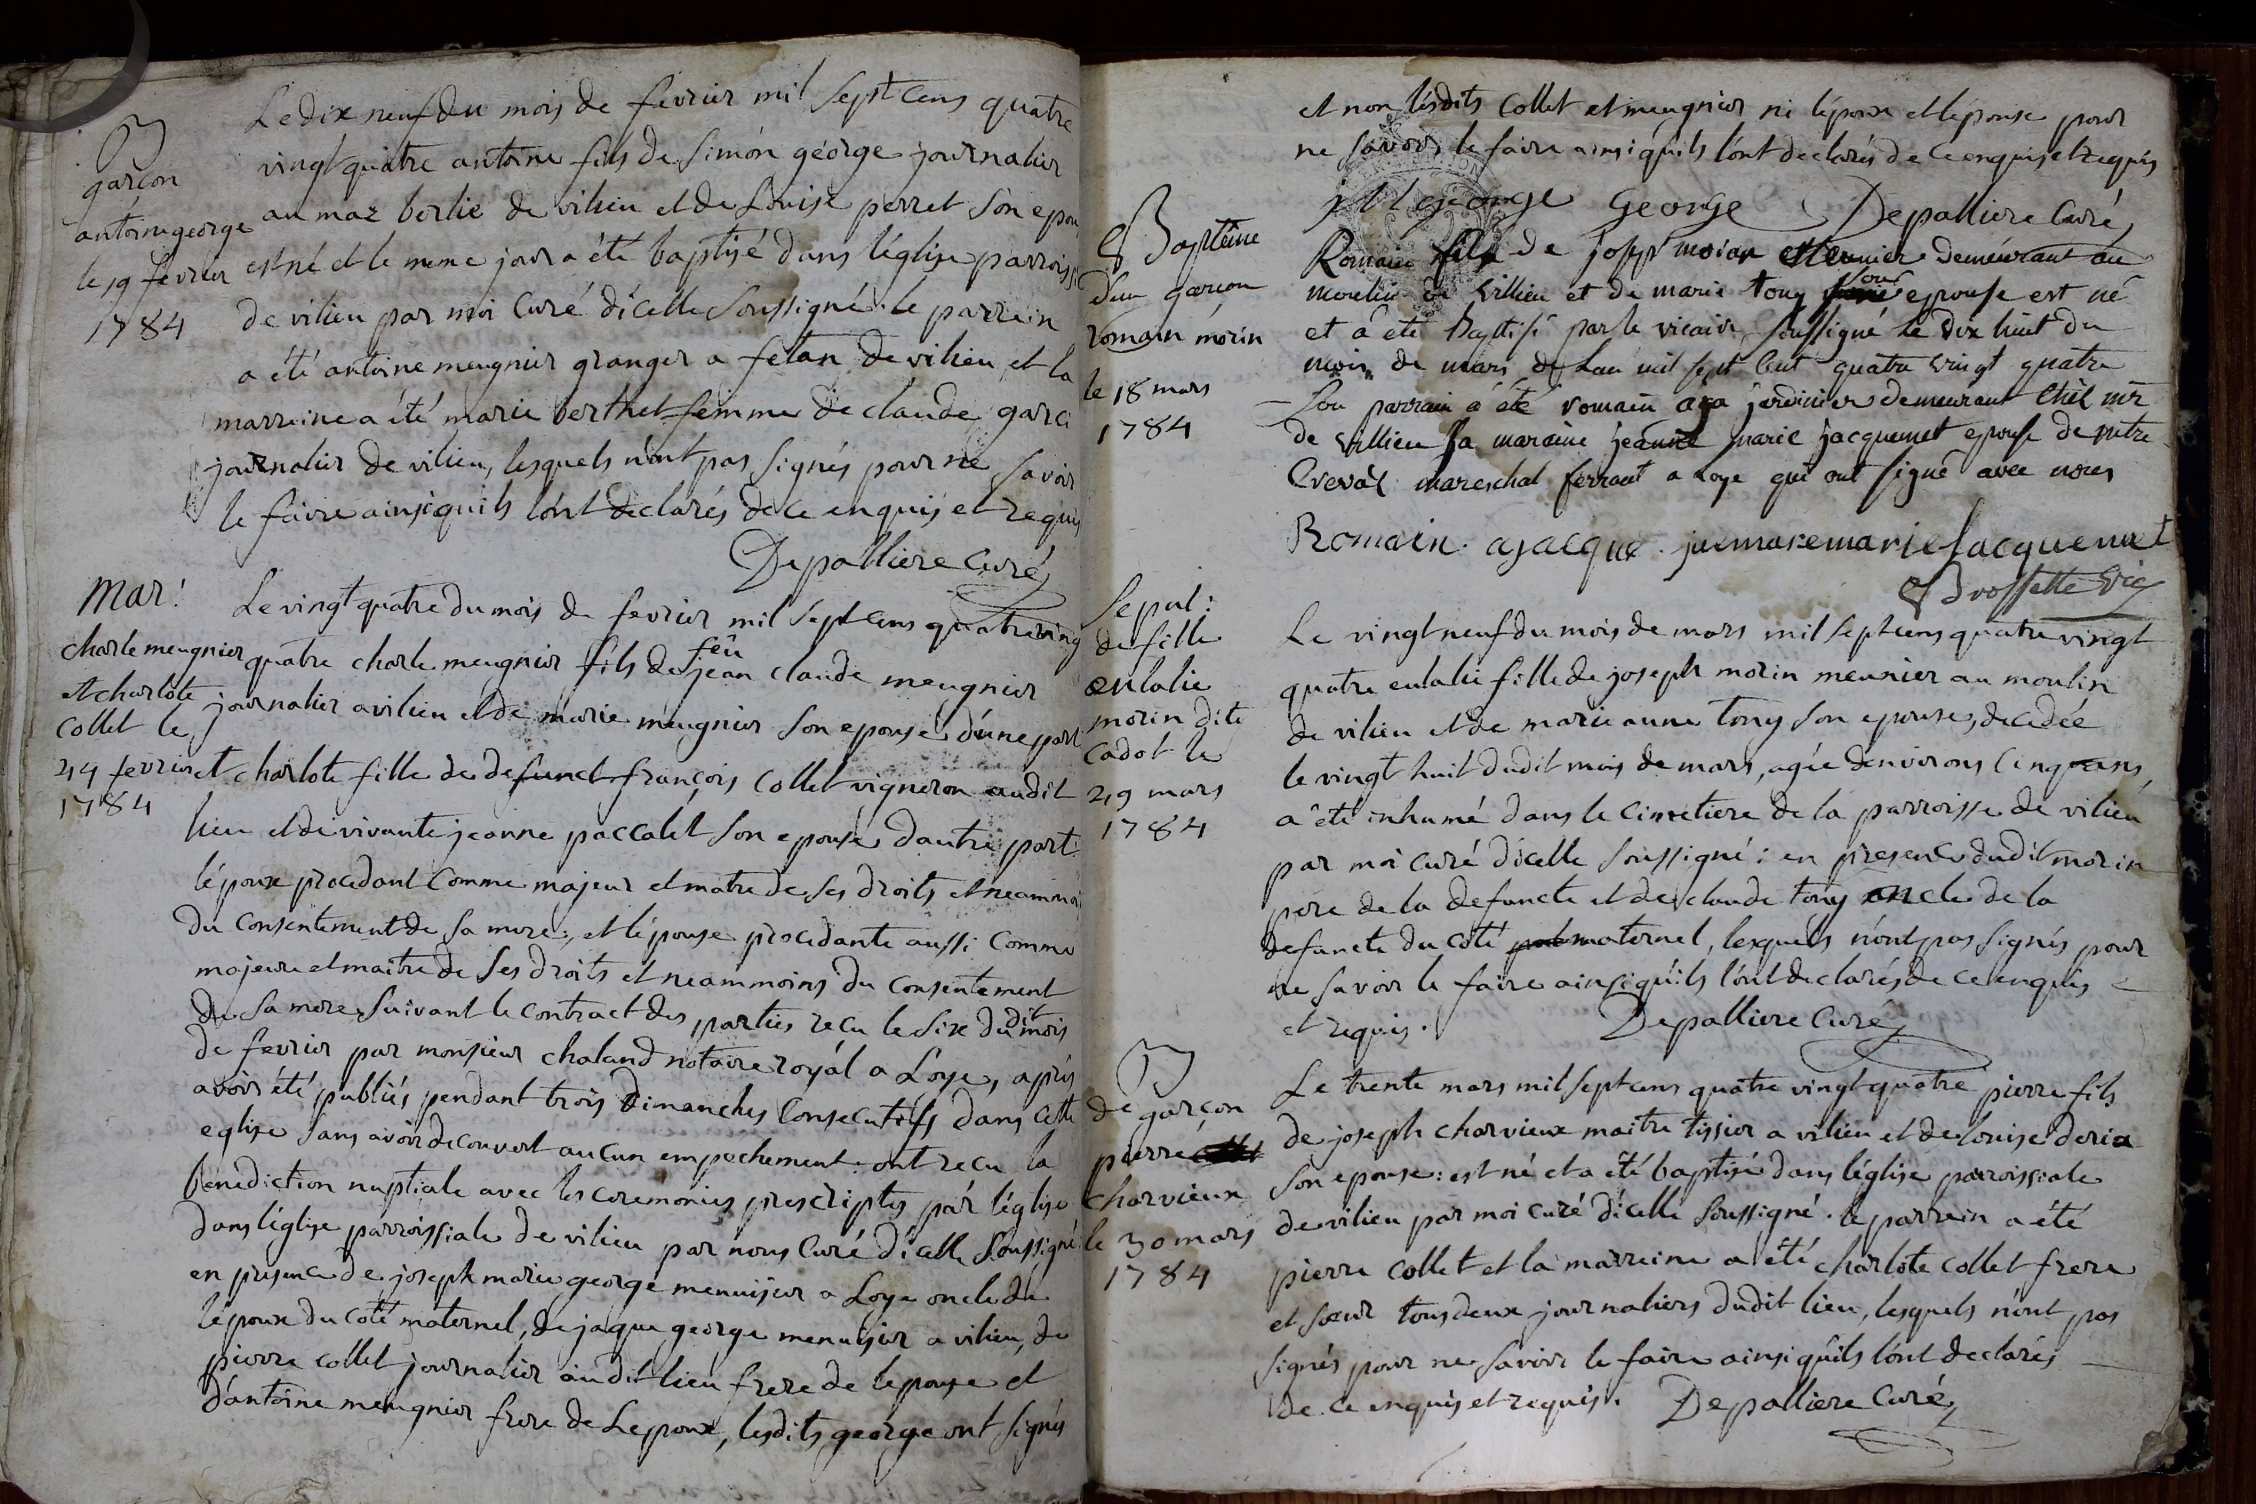 B
garçon
antoine george
le 19 fevrier
1784
Le dix neuf du mois de fevrier mil sept cens quatre
vingt quatre antoine fils de simon george journalier
au maz berlie de vilieu et de Louise perret son epou
est né et le meme jour a été baptisé dans léglise parroissi
de vilieu par moi curé dicelle soussigné. le parrein
a été antoine meugnier granger a fetan de vilieu et la
marreine a été marie berthet femme de claude garci
journalier de vilieu, lesquels n'ont pas signés pour ne savoir
le faire ainsi quils lont declarés de ce enquis et requis
Depalliere Curé
Mar:
charle meugnier
et charlote
collet le
24 fevrier
1784
Le vingt quatre du mois de fevrier mil sept cens quatre ving
quatre charle meugnier fils de feû jean claude meugnier
journalier a vilieu et de marie meugnier son epouse d'une part
et charlote fille de defunct françois collet vigneron audit
lieu et de vivante jeanne paccalet son epouse dautre part:
lépoux procedant comme majeur et matre de ses droits et neammoi
du consentement de sa mere, et lépouse procedante aussi comme
majeure et maitre de ses droits et neammoins du consentement
de sa mere, suivant le contract des parties recu le six dudit mois
de fevrier par monsieur chaland notaire royal a Loye, après
avoir été publiés pendant trois dimanches consecutifs dans cette
eglise sans avoir decouvert aucun empechement: ont recu la
benediction nuptiale avec les ceremonies prescriptes par léglise
dans léglise parroissiale de vilieu par nous curé dicelle soussigné
en presence de joseph marie george menuisier a Loye oncle de
lépoux du coté maternel, de jaque george menuisier a vilieu, de
pierre collet journalier audit lieu frere de lepouse et
d'antoine meugnier frere de Lepoux, lesdits george ont signés
et non lésdits collet et meugnier ni lépoux et lépouse pour
ne savoir le faire ainsi quils lont declarés de ce enquis et requis
j M george George Depalliere Curé
Baptême
d'un garçon
romain morin
le 18 mars
1784
Romain fils de joseph moian Meunier demeurant au
moulin de Villieu et de marie tony son epouse est né
et â été Baptisé par le vicaire soussigné le dix huit du
mois de mars de Lan mil sept Cent quatre vingt quatre
Son parrain â été romain aga jardinier demeurant Chéz mr
de Villieu sa maraine jeanne marie jacquemet epouse de pitre
Creval mareschal ferrant a Loye qui ont signé avec nous
Romain . ajacque . jaenmaremarie Jacquemet
Brossette Vic
Sepul:
de fille
eulalie
morin dite
cadot le
29 mars
1784
Le vingt neuf du mois de mars mil sept cens quatre vingt
quatre eulalie fille de joseph morin meunier au moulin
de vilieu et de marie anne tony son epouse, decedée
le vingt huit dudit mois de mars, agée denvirons cinq ans,
a été inhumé dans le cimetiere de la parroisse de vilieu
par moi curé dicelle soussigné: en presence dudit morin
pere de la defuncte et de claude tony oncle de la
defuncte du coté maternel, lesquels n'ont pas signés pour
ne savoir le faire ainsi quils lont declarés de ce enquis
et requis. Depalliere Curé
B
de garçon
pierre
charvieux
le 30 mars
1784
Le trente mars mil sept cens quatre vingt quatre pierre fils
de joseph charvieux maitre tissier a vilieu et de louise deria
son epouse: est né et a été baptisé dans léglise parroissiale
de vilieu par moi curé dicelle soussigné. le parrein a été
pierre collet et la marreine a été charlote collet frere
et sœur tous deux journaliers dudit lieu, lesquels n'ont pas
signés pour ne savoir le faire ainsi quils lont declarés
de ce enquis et requis. Depalliere Curé